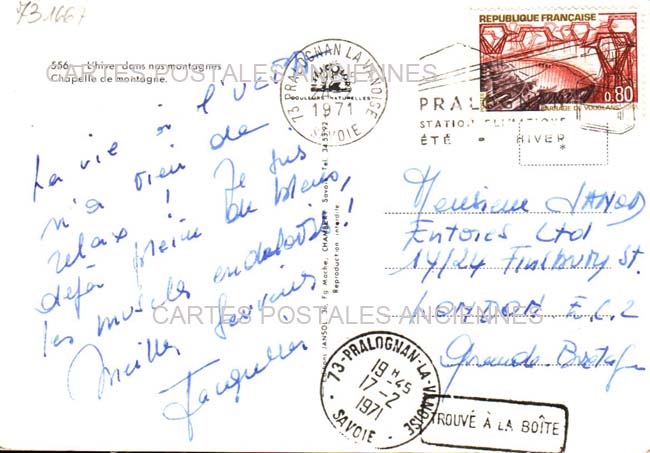 731667
556 - L'hiver dans nos montagnes
Chapelle de montagne.
CARTES POSTALES ANCIENNES
La vie à l'UCPA
n'a rien de
relax ! Je suis
déjà pleine de bleus,
les muscles endoloris !
Meilleurs
Jacqueline
73-PRALOGNAN LA VANOISE
COULEURS NATURELLES
1971
SAVOIE
REPUBLIQUE FRANÇAISE
0,80
BARRAGE DE VOUGLANS
PRALOGNAN
STATION CLIMATIQUE
ÉTÉ - HIVER
*
Editions JANSOL, Fg Mache, CHAMBERY Savoie Tel. 34.5392
Reproduction interdite
Monsieur JANOD
Entores Ltd
14/24 Finsbury St.
LONDON E.C.2
Grande-Bretagne
CARTES POSTALES ANCIENNES
73-PRALOGNAN-LA-VANOISE
19H-45
17-2
1971
SAVOIE
TROUVÉ À LA BOÎTE